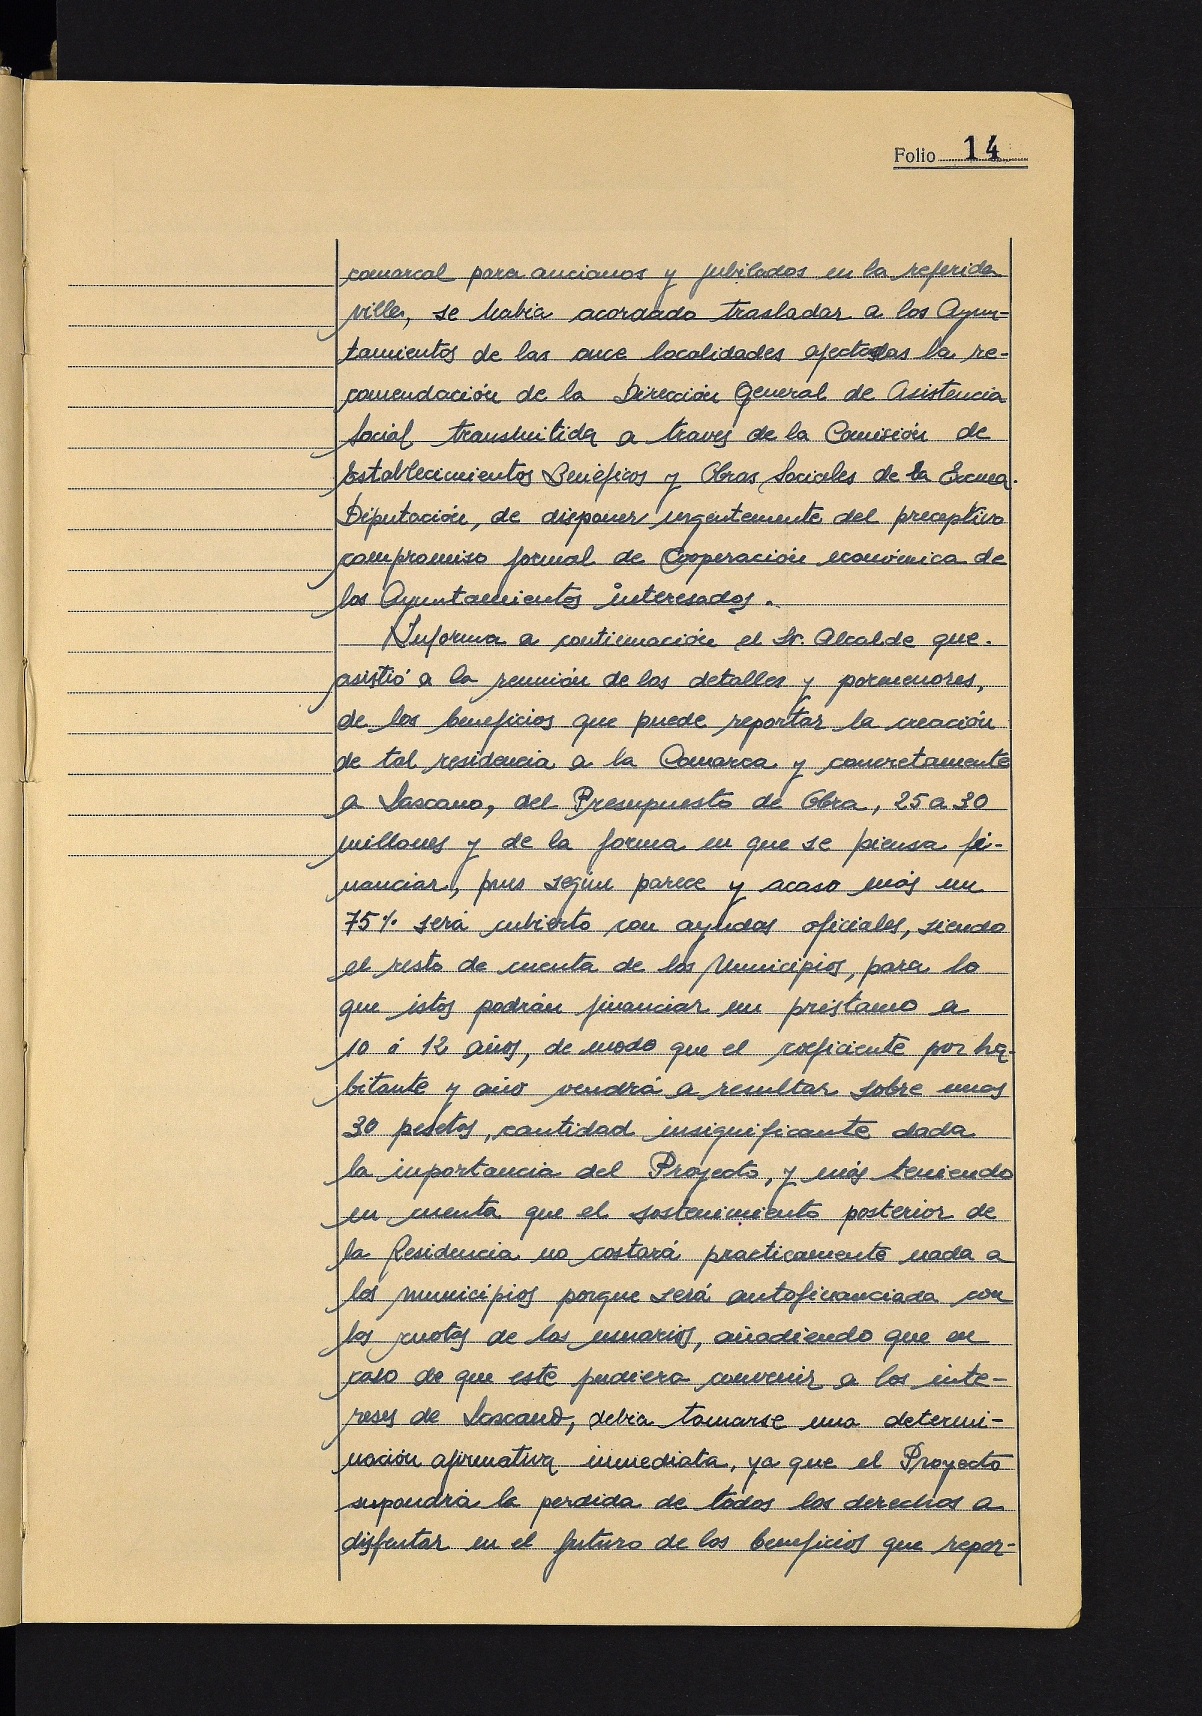 Folio 14
comarcal para ancianos y jubilados en la referida
villa, se habia acordado trasladar a los Ayun-
tamientos de las once localidades afectadas la re-
comendación de la Dirección General de Asistencia
Social transmitida a través de la Comisión de
Establecimientos Benéficos y Obras Sociales de la Excma.
Diputación, de disponer urgentemente del preceptivo
compromiso formal de Cooperación económica de
los Ayuntamientos interesados.
Informa a continuación el Sr. Alcalde que
asistió a la reunión de los detalles y pormenores,
de los beneficios que puede reportar la creación
de tal residencia a la Comarca y concretamente
a Lascano, del Presupuesto de Obra, 25 a 30
millones y de la forma en que se piensa fi-
nanciar, pues según parece y acaso más un
75% será cubierto con ayudas oficiales, siendo
el resto de cuenta de los Municipios, para lo
que éstos podrán financiar un préstamo a
10 ó 12 años, de modo que el coeficiente por ha-
bitante y año vendrá a resultar sobre unas
30 pesetas, cantidad insignificante dada
la importancia del Proyecto, y más teniendo
en cuenta que el sostenimiento posterior de
la Residencia no costará practicamente nada a
los municipios porque será autofinanciada con
las cuotas de los usuarios, añadiendo que en
caso de que este pudiera convenir a los inte-
reses de Lascano, debia tomarse una determi-
nación afirmativa inmediata, ya que el Proyecto
supondrá la perdida de todos los derechos a
disfrutar en el futuro de los beneficios que repor-